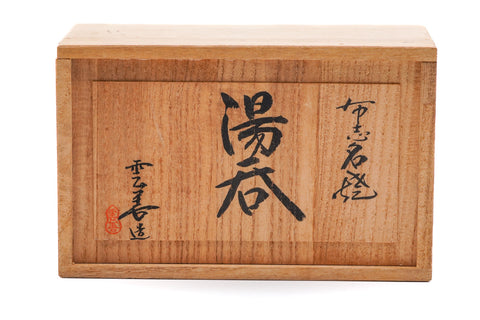 布志名焼
湯呑
雲善造